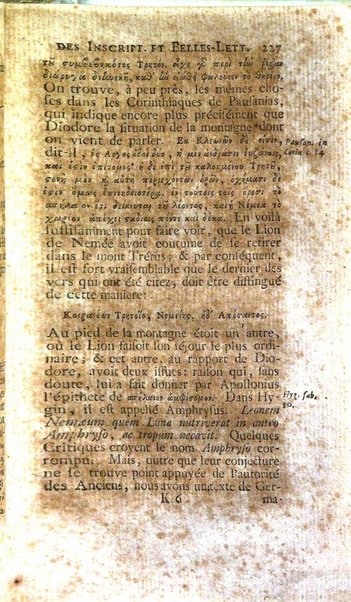 DES INSCRIPT. ET BELLES-LETT. 227
τῦ συμβεβηκότος Τρητόν. εἶχε γὸ περὶ τὼ ῥίζαν
διώρυχα διηνεκῆ, καθ' ἣν
On trouve, à peu près, les mêmes cho-
ses dans les Corinthiaques de Pausanias,
qui indique encore plus précisément que
Diodore la situation de la montagne dont
on vient de parler. Ἐκ Κλεωνῶν δέ εἰσιν,
Pausan. in
Corin. c. 14.
dit-il, ἐς Ἄργος ὁδοὶ δύο, ἡ μὲν ἀνδράσιν εὐζώνοις,
καὶ ἔςιν ἐπίτομος· ἡ δὲ ἐπὶ τῦ καλουμένου Τρητῦ,
ςενὴ μὲν ἡ αὐτὴ περιεχόντων ὀρῶν, ὀχήμασι δέ
ἐςιν ὅμως ἐπιτηδειοτέρα. ἐν τούτοις τοῖς ὄρεσι τὸ
σπήλαιον ἔτι δείκνυται τῦ λέοντος, καὶ ἡ Νεμέα τὸ
χωρίον ἀπέχει ςαδίοις πέντε καὶ δέκα. En voilà
suffisamment pour faire voir, que le Lion
de Nemée avoit coutume de se retirer
dans le mont Trétus; & par conséquent,
il est fort vraisemblable que le dernier des
vers qui ont été citez, doit être distingué
de cette maniere:
Κοιρανέων Τρητοῖο, Νεμείης, ἠδ' Ἀπέσαντος.
Au pied de la montagne étoit un antre,
où le Lion faisoit son séjour le plus ordi-
naire; & cet antre, au rapport de Dio-
dore, avoit deux issues: raison qui, sans
doute, lui a fait donner par Apollonius
l'épithete de σπήλαιον ἀμφίςομον. Dans Hy-
Hyg. fab.
30.
gin, il est appellé Amphrysus. Leonem
Nemæum quem Luna nutriverat in antro
Amphryso, ac tropum necavit. Quelques
Critiques croyent le nom Amphryso cor-
rompu. Mais, outre que leur conjecture
ne se trouve point appuyée de l'autorité
des Anciens, nous avons un texte de Ger-
K 6 ma-